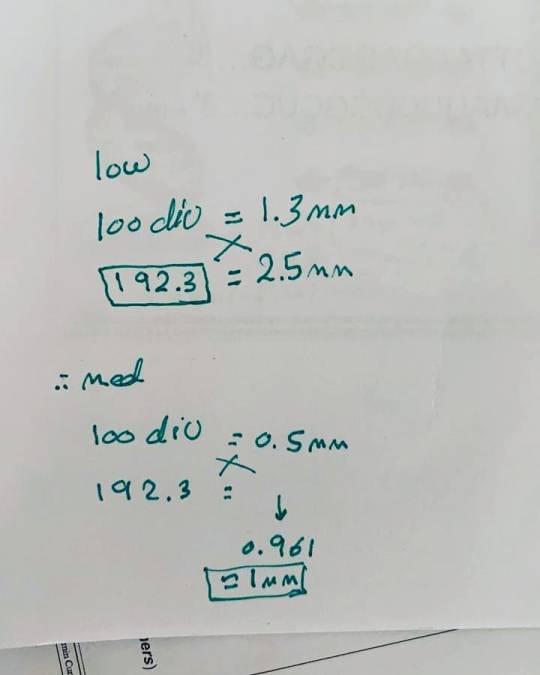 low
100 div = 1.3 mm
192.3 = 2.5 mm
∴ med
100 div = 0.5 mm
192.3 =
↓
0.961
≈ 1 mm
ers)
min Cur